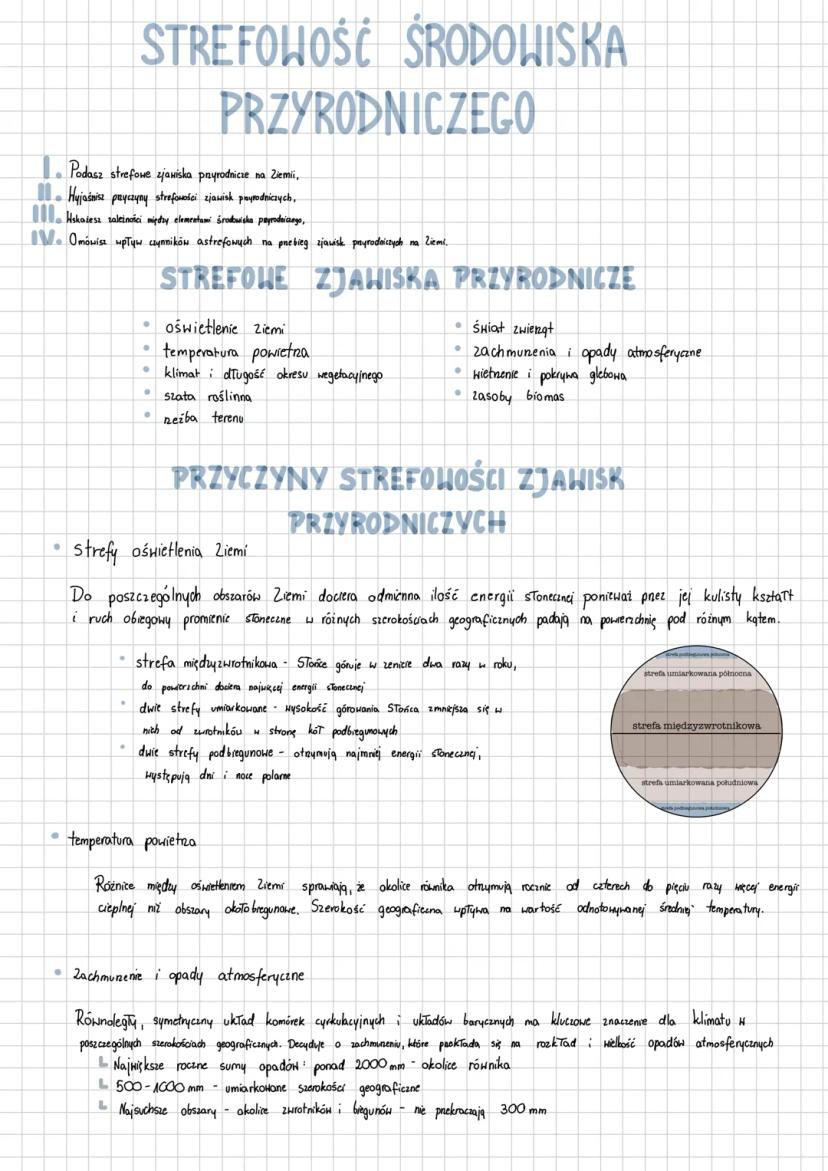 STREFOWOŚĆ ŚRODOWISKA
PRZYRODNICZEGO
I. Podasz strefowe zjawiska przyrodnicze na Ziemii,
II. Wyjaśnisz przyczyny strefowości zjawisk przyrodniczych,
III. Wskażesz zależności między elementami środowiska przyrodniczego,
IV. Omówisz wpływ czynników astrefowych na przebieg zjawisk przyrodniczych na Ziemi.
STREFOWE ZJAWISKA PRZYRODNICZE
• oświetlenie Ziemi
• temperatura powietrza
• klimat i długość okresu wegetacyjnego
• szata roślinna
• rzeźba terenu
• świat zwierząt
• zachmurzenia i opady atmosferyczne
• wietrzenie i pokrywa glebowa
• zasoby biomas
PRZYCZYNY STREFOWOŚCI ZJAWISK
PRZYRODNICZYCH
• strefy oświetlenia Ziemi
Do poszczególnych obszarów Ziemi dociera odmienna ilość energii słonecznej ponieważ przez jej kulisty kształt
i ruch obiegowy promienie słoneczne w różnych szerokościach geograficznych padają na powierzchnię pod różnym kątem.
• strefa międzyzwrotnikowa - Słońce góruje w zenicie dwa razy w roku,
do powierzchni dociera najwięcej energii słonecznej
• dwie strefy umiarkowane - wysokość górowania Słońca zmniejsza się w
nich od zwrotników w stronę kół podbiegunowych
• dwie strefy podbiegunowe - otrzymują najmniej energii słonecznej,
występują dni i noce polarne
strefa podbiegunowa północna
strefa umiarkowana północna
strefa międzyzwrotnikowa
strefa umiarkowana południowa
strefa podbiegunowa południowa
• temperatura powietrza
Różnice między oświetleniem Ziemi sprawiają, że okolice równika otrzymują rocznie od czterech do pięciu razy więcej energii
cieplnej niż obszary okołobiegunowe. Szerokość geograficzna wpływa na wartość odnotowywanej średniej temperatury.
• Zachmurzenie i opady atmosferyczne
Równoległy, symetryczny układ komórek cyrkulacyjnych i układów barycznych ma kluczowe znaczenie dla klimatu w
poszczególnych szerokościach geograficznych. Decyduje o zachmurzeniu, które przekłada się na rozkład i wielkość opadów atmosferycznych
Największe roczne sumy opadów: ponad 2000 mm - okolice równika
500-1000 mm - umiarkowane szerokości geograficzne
Najsuchsze obszary - okolice zwrotników i biegunów - nie przekraczają 300 mm